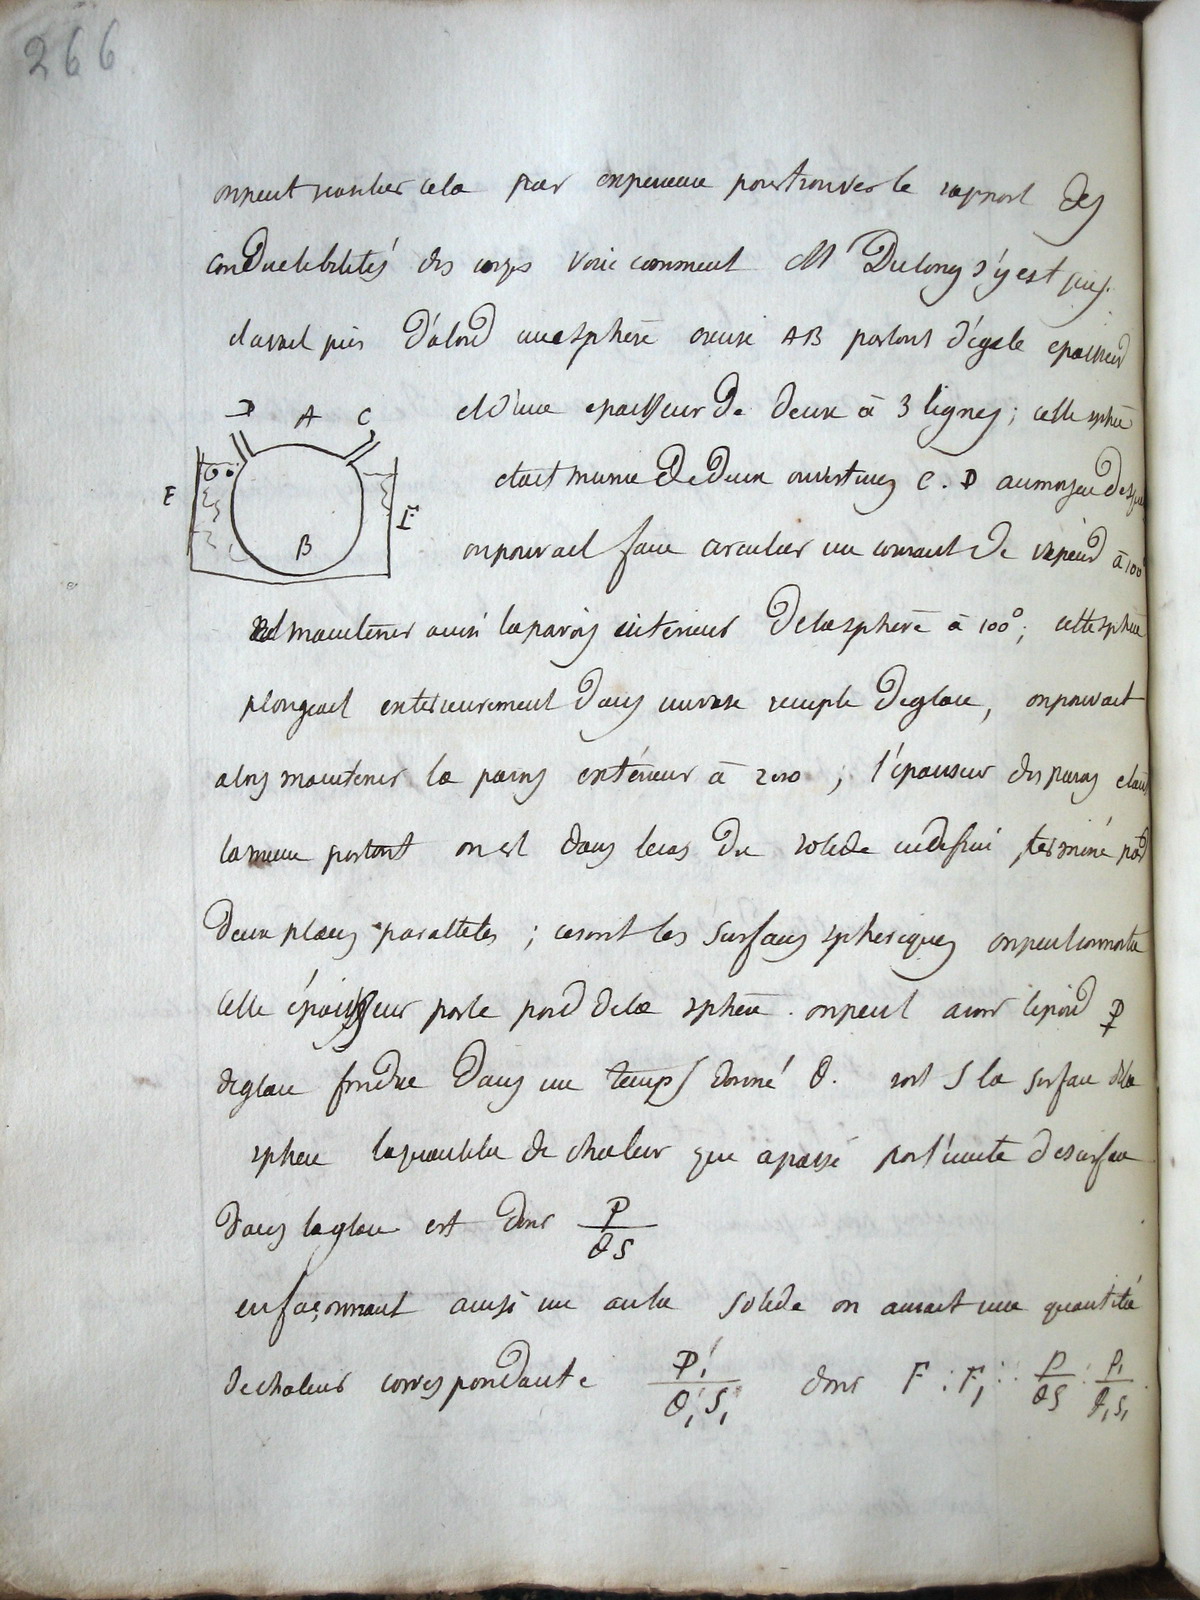 266
on peut verifier cela par experience pour trouver le rapport des
conductibilités des corps voici comment Mr Dulong s'y est pris.
il avait pris d'abord une sphere creuse AB partout d'égale epaisseur
et d'une epaisseur de deux à 3 lignes; cette sphere
D A C
etait munie de deux ouvertures C. D au moyen desquelles
E F
B
on pouvait faire circuler un courant de vapeur à 100°
et maintenir ainsi la parois interieur de la sphere à 100°; cette sphere
plongeait exterieurement dans un vase remple de glace, on pouvait
alors maintenir la parois extérieur à zero; l'épaisseur des parois etant
la meme partout on est dans le cas du solide indefini, terminé par
deux plans paralleles; ce sont les surfaces spheriques on peut connaitre
cette épaisseur par le poid de la sphere. on peut avoir le poid P
de glace fondue dans un temps donné θ. soit S la surface de la
sphere la quantite de chaleur que a passé par l'unite de surface
dans la glace est donc P/θS
en façonnant ainsi un autre solide on aurait une quantité
de chaleur correspondante P'/θ,S, donc F : F, :: P/θS : P,/θ,S,